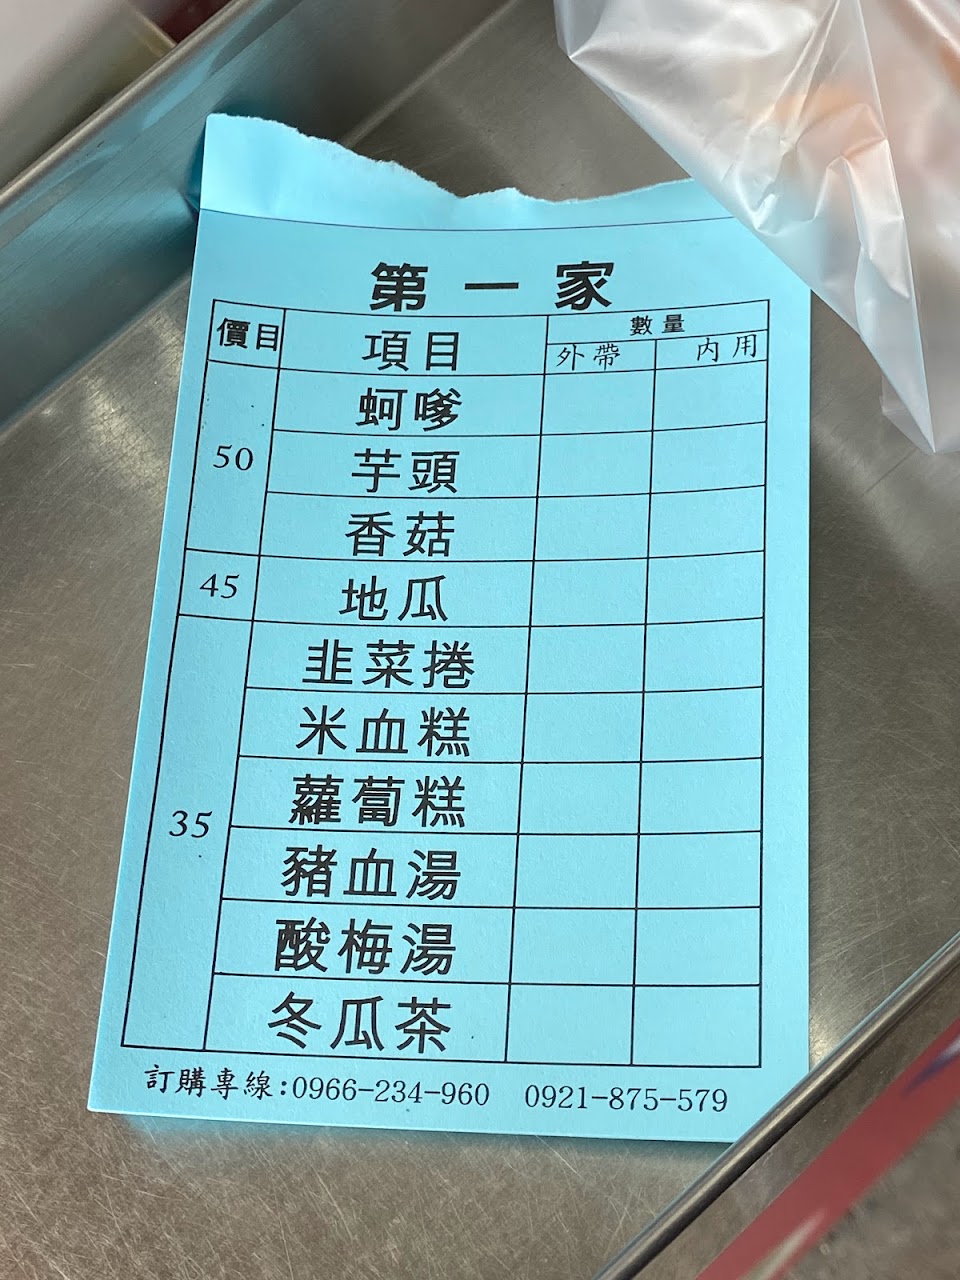 第一家
價目 項目 數量
外帶 內用
50 蚵嗲
芋頭
香菇
45 地瓜
35 韭菜捲
米血糕
蘿蔔糕
豬血湯
酸梅湯
冬瓜茶
訂購專線:0966-234-960 0921-875-579